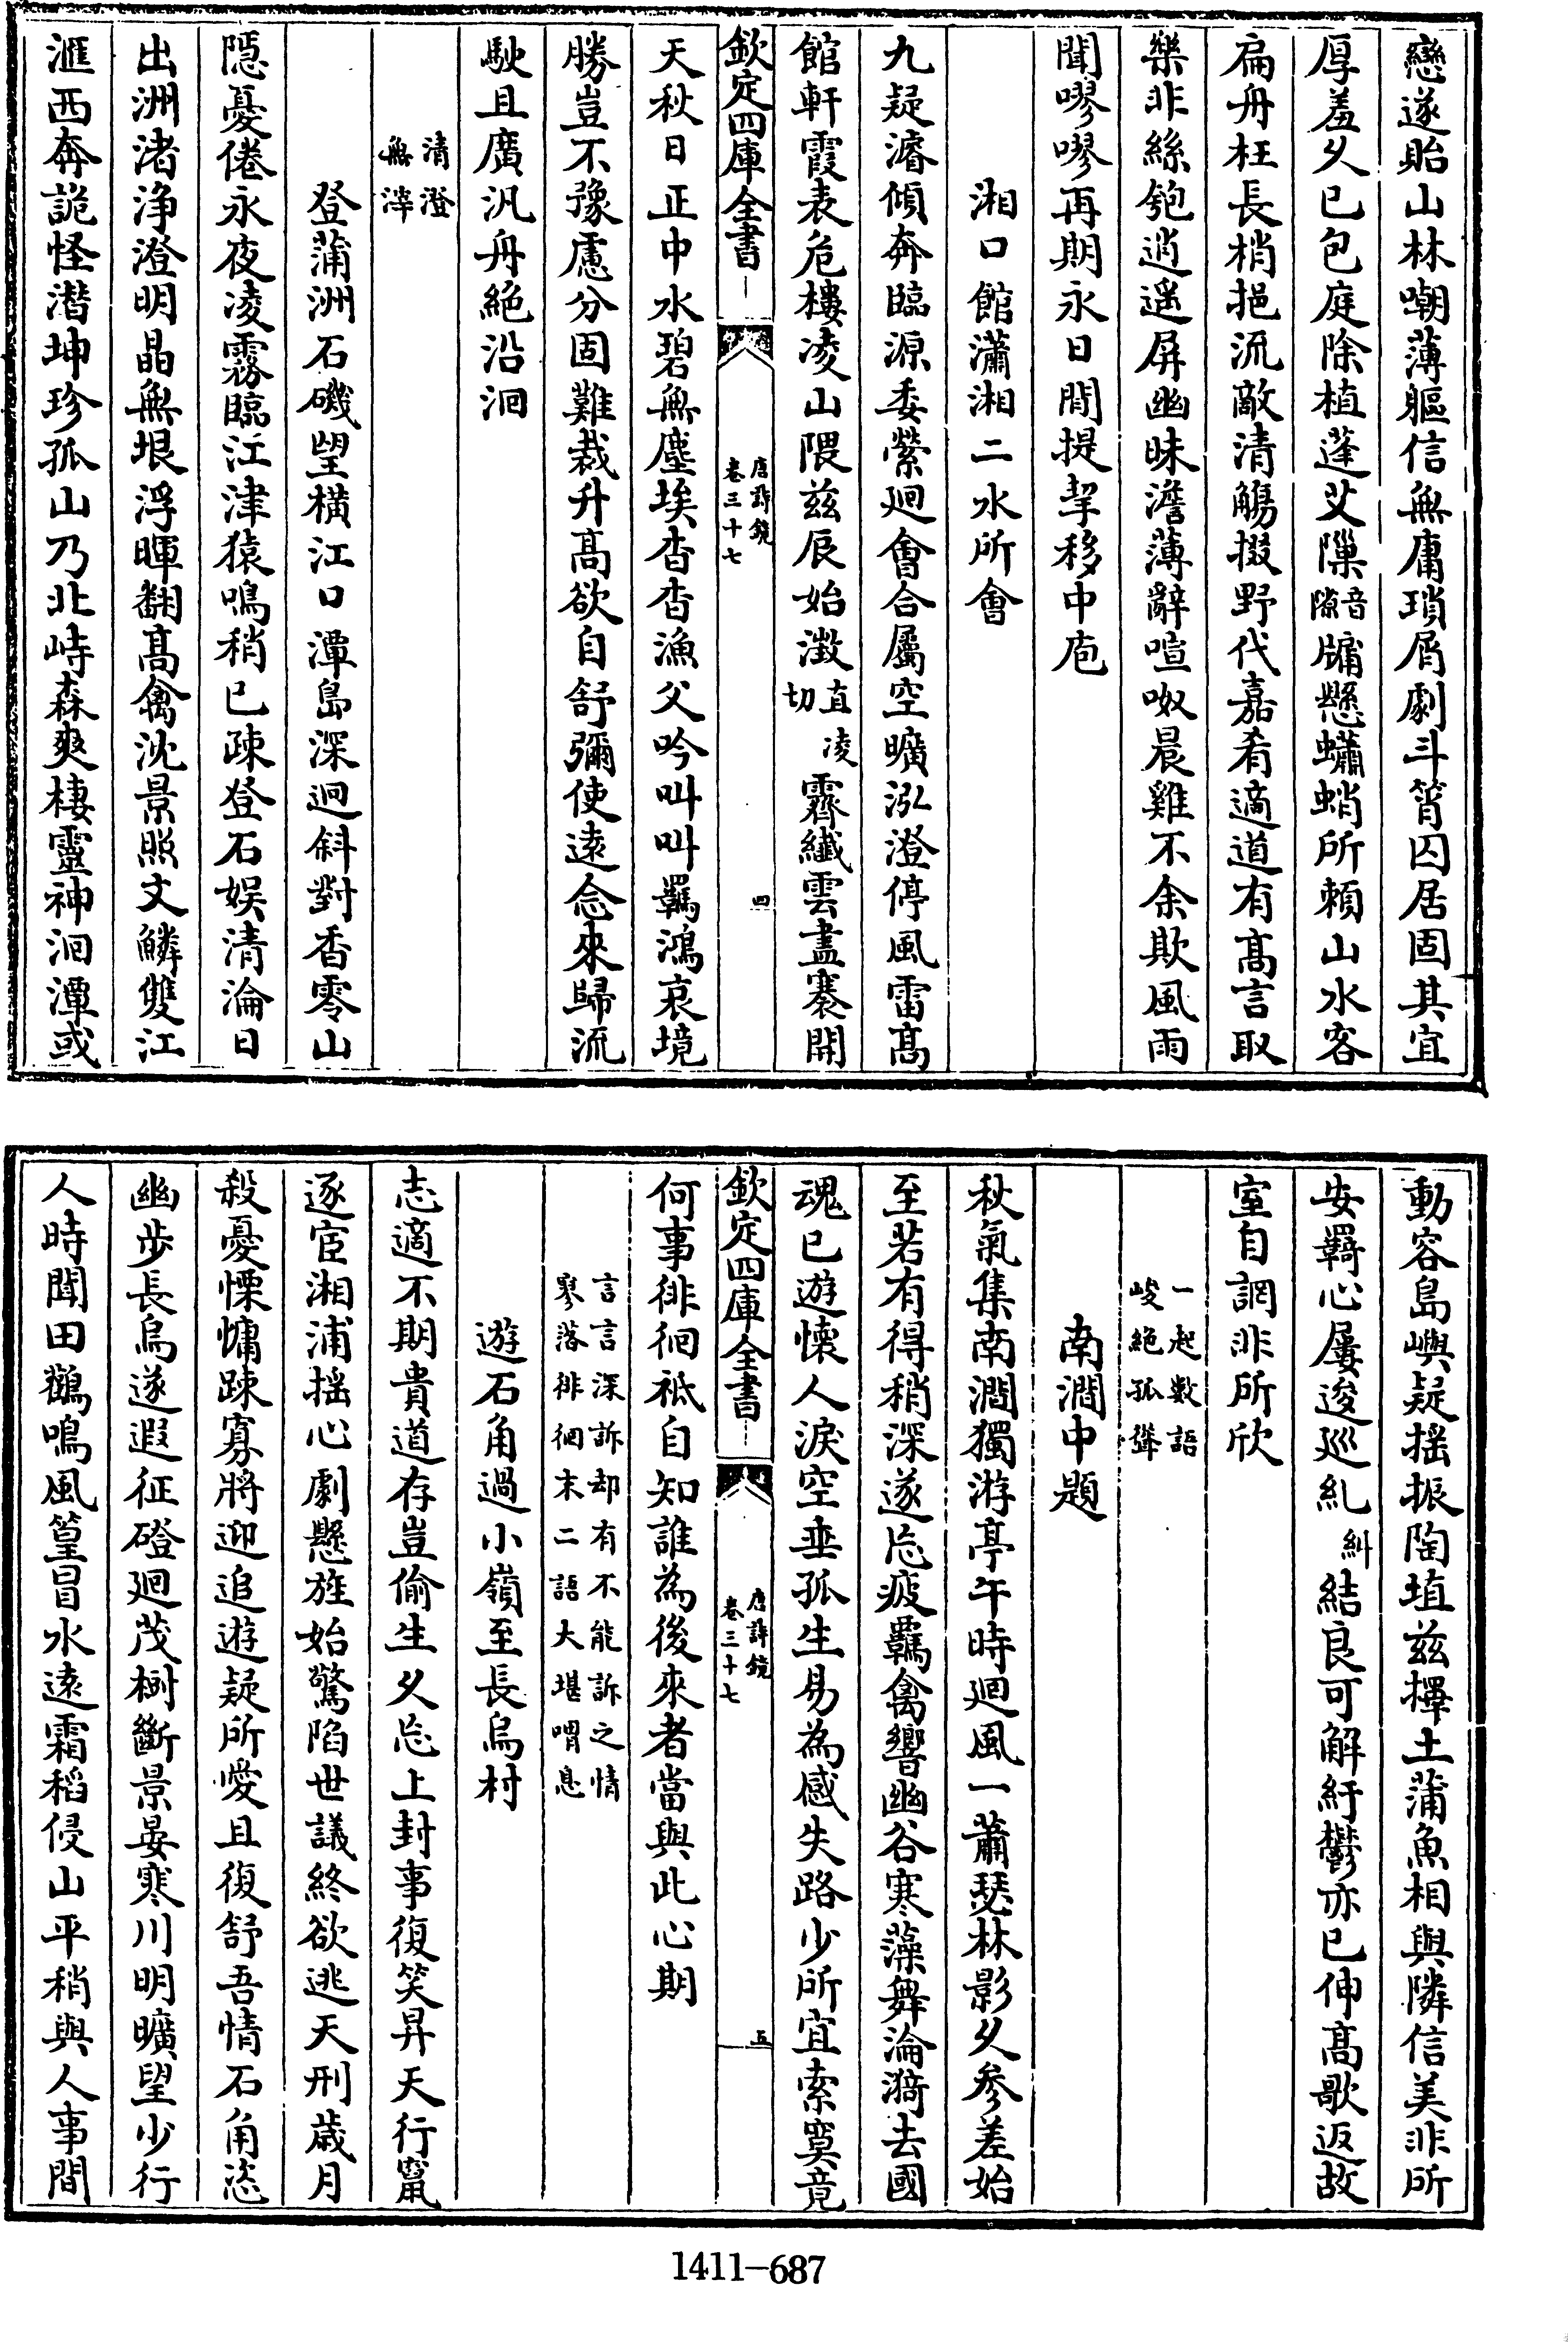 戀遂貽山林嘲薄軀信無庸瑣屑劇斗筲囚居固其宜
厚羞久已包庭除植蓬艾隟音隙牖懸蠨蛸所賴山水客
扁舟枉長梢挹流敵清觴掇野代嘉肴適道有高言取
樂非絲匏逍遥屏幽昧澹薄辭喧呶晨雞不余欺風雨
聞嘐嘐再期永日閒提挈移中庖
湘口館瀟湘二水所會
九疑濬傾奔臨源委縈迴會合屬空曠泓澄停風雷高
館軒霞表危樓凌山隈兹辰始澂直凌切霽纖雲盡褰開
欽定四庫全書
唐詩鏡
卷三十七
四
天秋日正中水碧無塵埃杳杳漁父吟叫叫羈鴻哀境
勝豈不豫慮分固難裁升高欲自舒彌使遠念來歸流
駛且廣汎舟絶沿洄
清澄
無滓
登蒲洲石磯望横江口潭島深迥斜對香零山
隱憂倦永夜凌霧臨江津猿鳴稍已疎登石娱清淪日
出洲渚浄澄明晶無垠浮暉翻高禽沈景照文鱗雙江
滙西奔詭怪潛坤珍孤山乃北峙森爽棲靈神洄潭或
動容島嶼疑揺振陶埴兹擇土蒲魚相與隣信美非所
安羇心屢逡巡糺糾結良可解紆鬱亦已伸高歌返故
室自誷非所欣
一起數語
峻絶孤聳
南澗中題
秋氣集南澗獨游亭午時迴風一蕭瑟林影久參差始
至若有得稍深遂忘疲羈禽響幽谷寒藻舞淪漪去國
魂已遊懐人淚空垂孤生易為感失路少所宜索寞竟
欽定四庫全書
唐詩鏡
卷三十七
五
何事徘徊祗自知誰為後來者當與此心期
言言深訴却有不能訴之情
寥落徘徊末二語大堪喟息
遊石角過小嶺至長烏村
志適不期貴道存豈偷生久忘上封事復笑昇天行竄
逐宦湘浦揺心劇懸旌始驚陷世議終欲逃天刑歲月
殺憂慄慵踈寡將迎追遊疑所愛且復舒吾情石角恣
幽步長烏遂遐征磴迴茂樹斷景晏寒川明曠望少行
人時聞田鸛鳴風篁冒水遠霜稻侵山平稍與人事間
1411—687